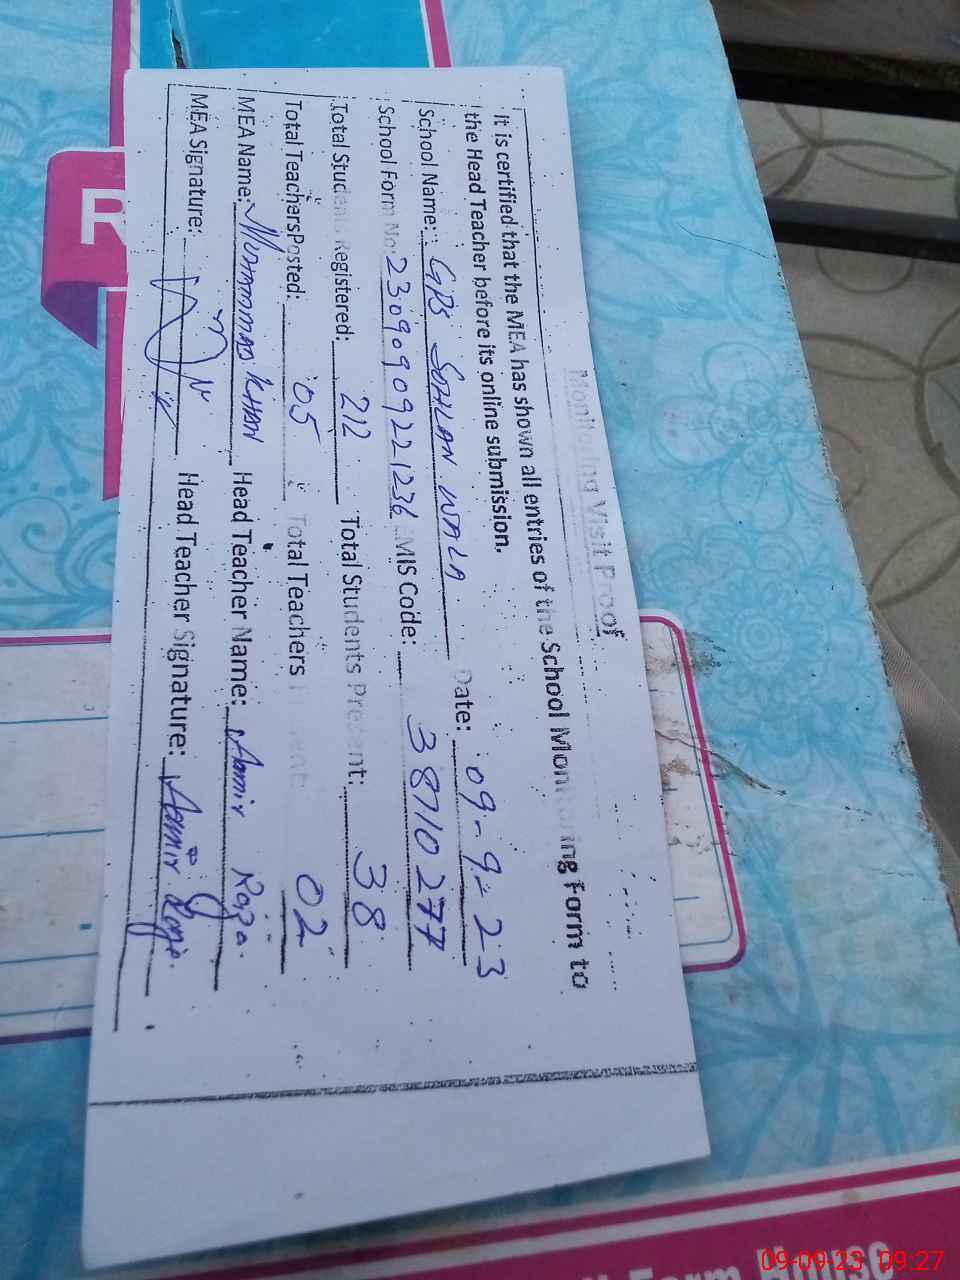 Monitoring Visit Proof
It is certified that the MEA has shown all entries of the School Monitoring Form to
the Head Teacher before its online submission.
School Name: GPS SOHLAN WALA Date: 09-9-23
School Form No: 23090909221236 EMIS Code: 38710277
Total Students Registered: 212 Total Students Present: 38
Total Teachers Posted: 05 Total Teachers Present: 02
MEA Name: MUHAMMAD KHAN Head Teacher Name: Aamir Raza.
MEA Signature: Head Teacher Signature: Aamir Raza.
R
Form House
09-09-23 09:27